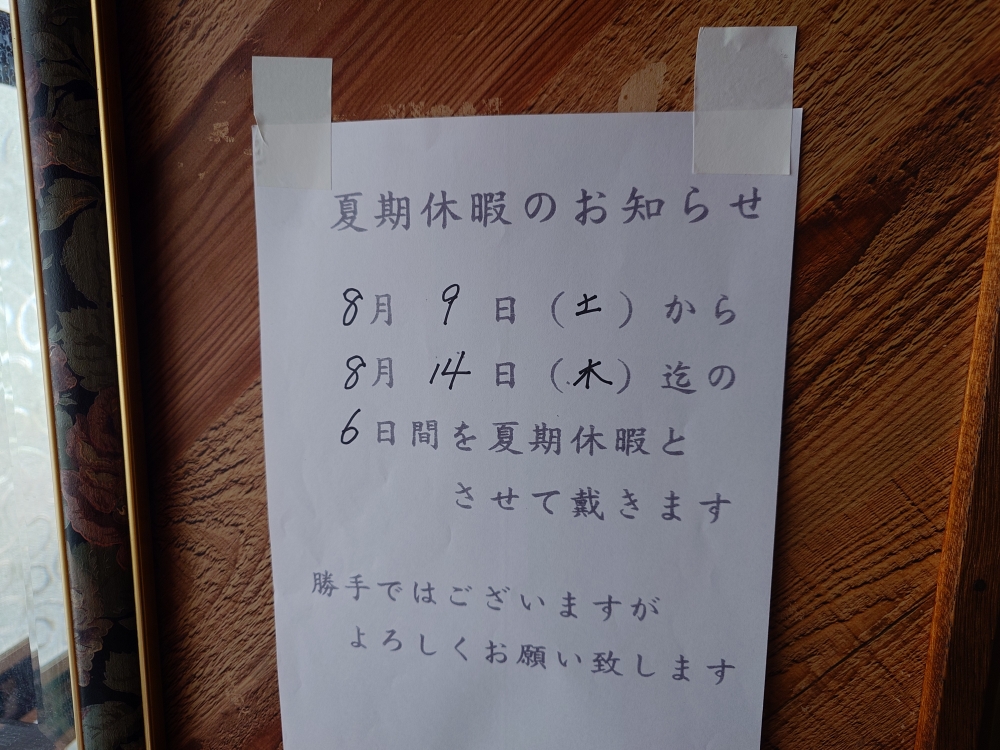 夏期休暇のお知らせ
8月 9 日(土)から
8月 14 日(木)迄の
6日間を夏期休暇と
させて戴きます
勝手ではございますが
よろしくお願い致します